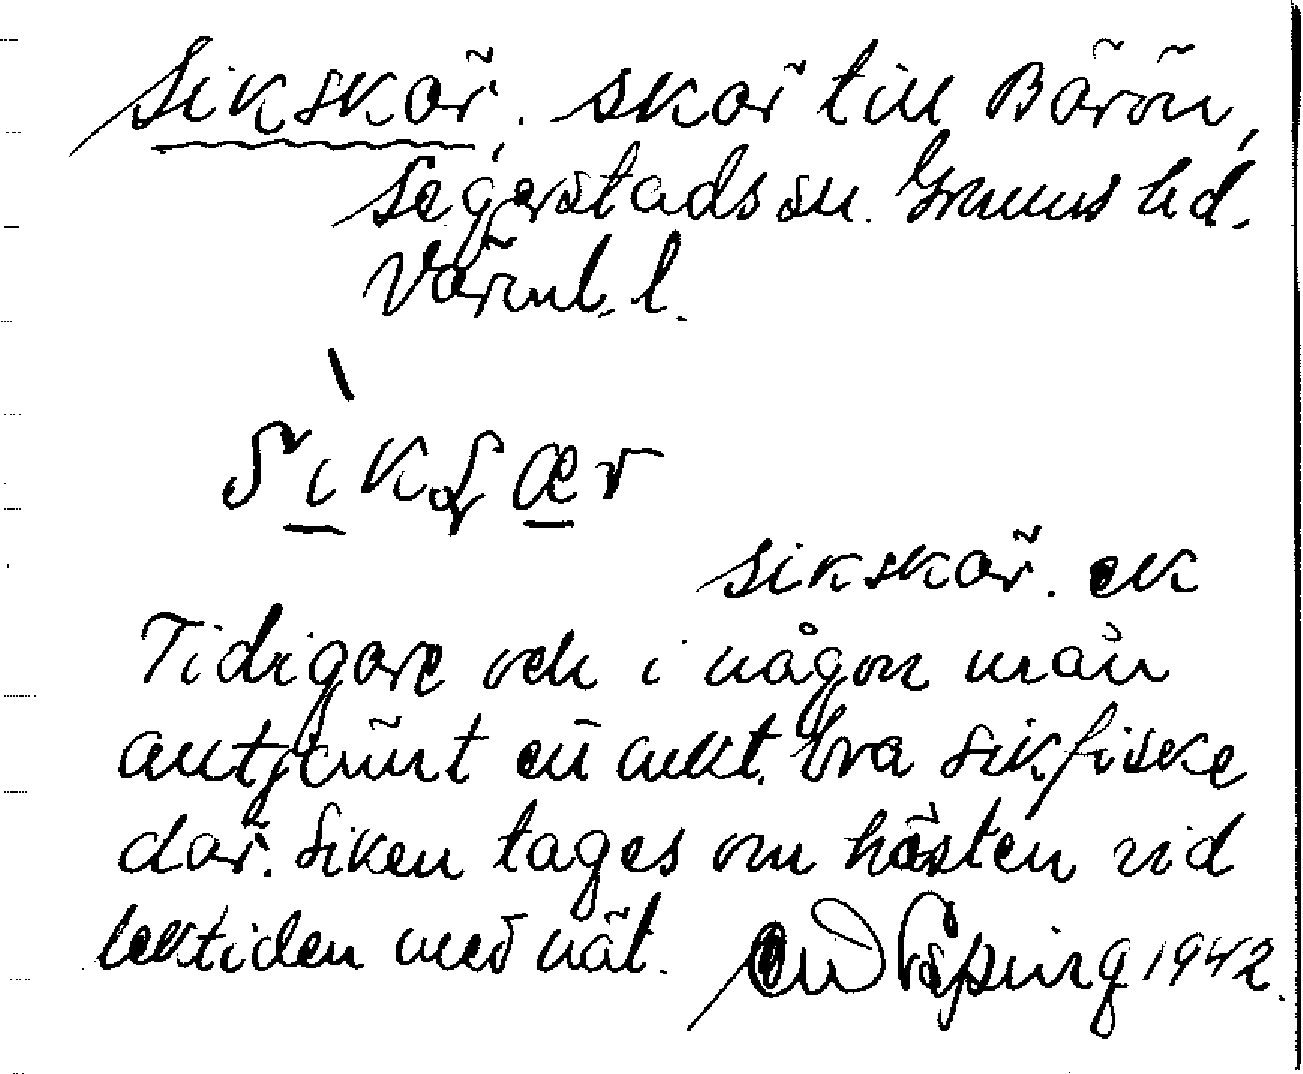 Sikskär. skär till Bärön,
Segerstads sn. Grums hd.
Värml. l.
sikʂær
sikskär. ek
Tidigare och i någon mån
alltjämt ett bra sikfiske
där. Siken tages om hösten vid
lektiden med nät. 1942.